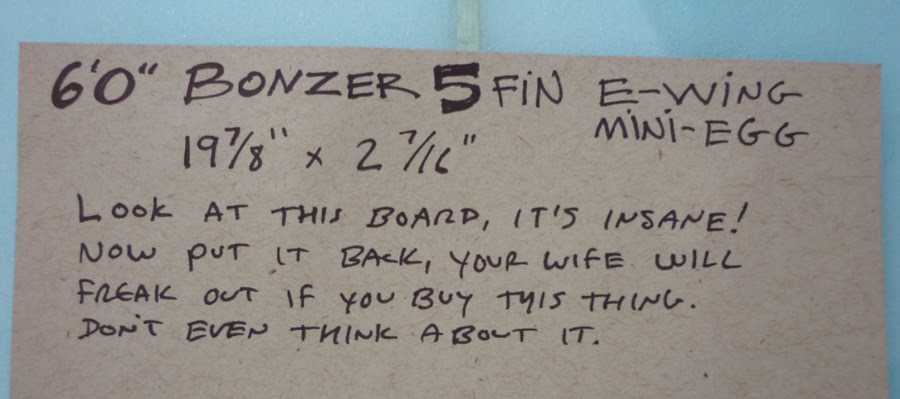 6'0" BONZER 5 FIN E-WING
MINI-EGG
19 7/8" x 2 7/16"
LOOK AT THIS BOARD, IT'S INSANE!
NOW PUT IT BACK, YOUR WIFE WILL
FREAK OUT IF YOU BUY THIS THING.
DON'T EVEN THINK ABOUT IT.